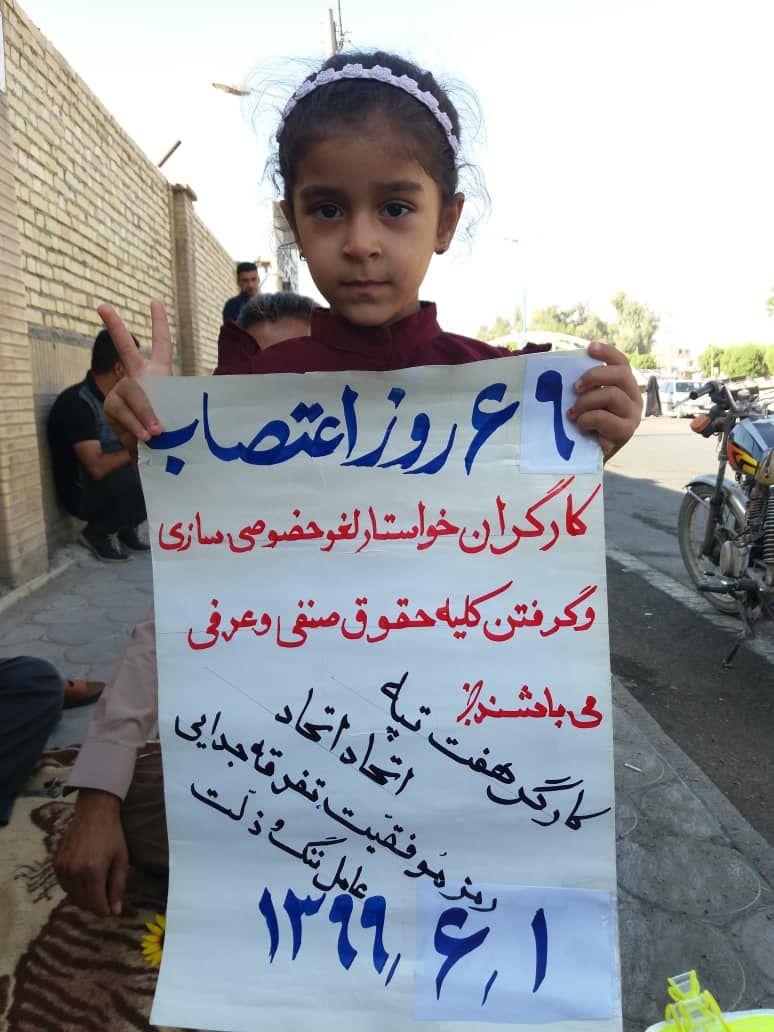 ۶۹ روز اعتصاب
کارگران خواستار لغو خصوصی سازی
و گرفتن کلیه حقوق صنفی و عرفی
می باشند
کارگر هفت تپه
اتحاد اتحاد
رمز مُوفقیّت، تفرقه جدایی
عامل ننگ و ذلّت
۱۳۹۹٫۶٫۱